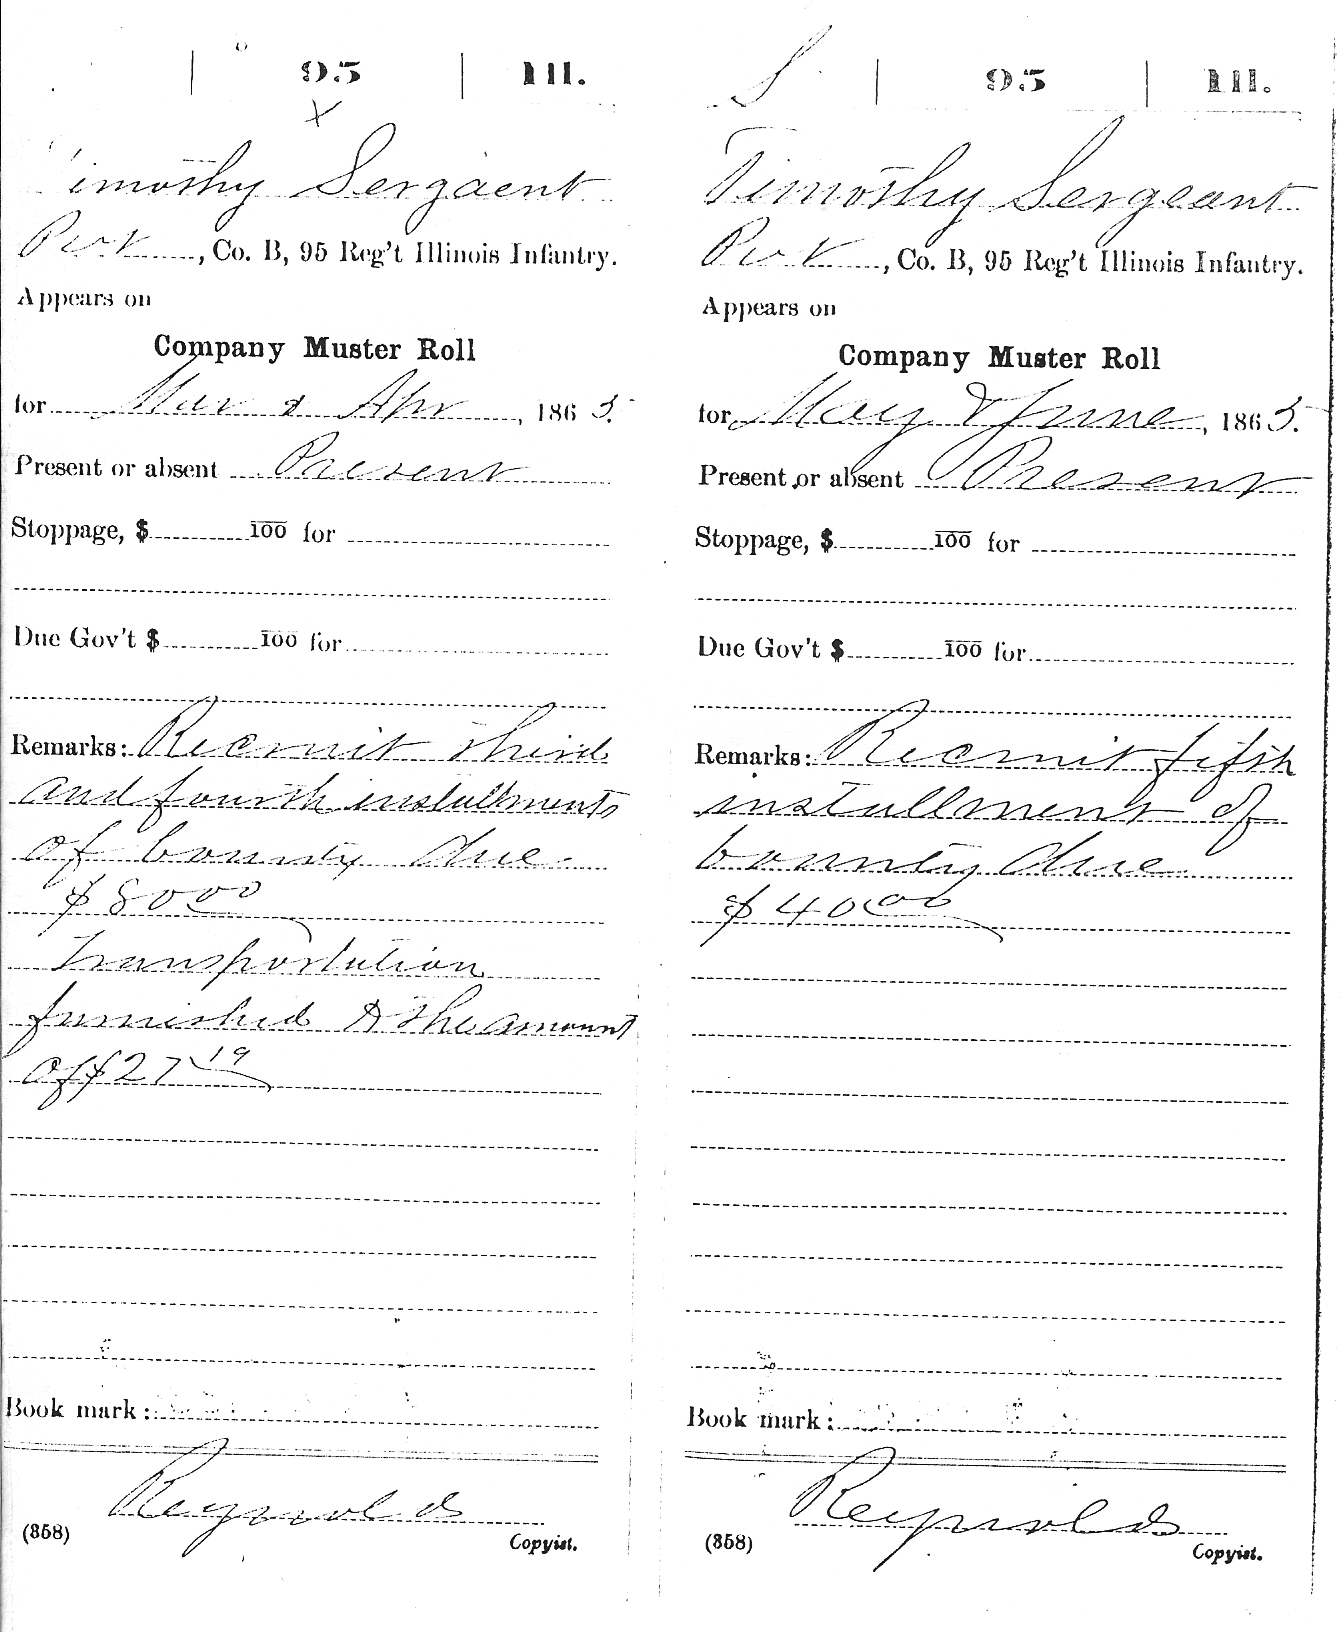 95 | Ill.
X
Timothy Sergaent
Pvt, Co. B, 95 Reg't Illinois Infantry.
Appears on
Company Muster Roll
for Mar & Apr, 1865.
Present or absent Present
Stoppage, $ 100 for
Due Gov't $ 100 for
Remarks: Recruit third
and fourth installments
of bounty due
$80 00
Transportation
furnished to the amount
of $27 19
Book mark:
Reynolds
(358)
Copyist.
S | 95 | Ill.
Timothy Sergeant
Pvt, Co. B, 95 Reg't Illinois Infantry.
Appears on
Company Muster Roll
for May & June, 1865.
Present or absent Present
Stoppage, $ 100 for
Due Gov't $ 100 for
Remarks: Recruit fifth
installment of
bounty due
$40 00
Book mark:
Reynolds
(358)
Copyist.